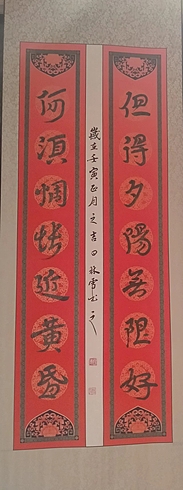 但得夕陽無限好
何須惆悵近黃昏
歲在壬寅正月之吉日林雪书之